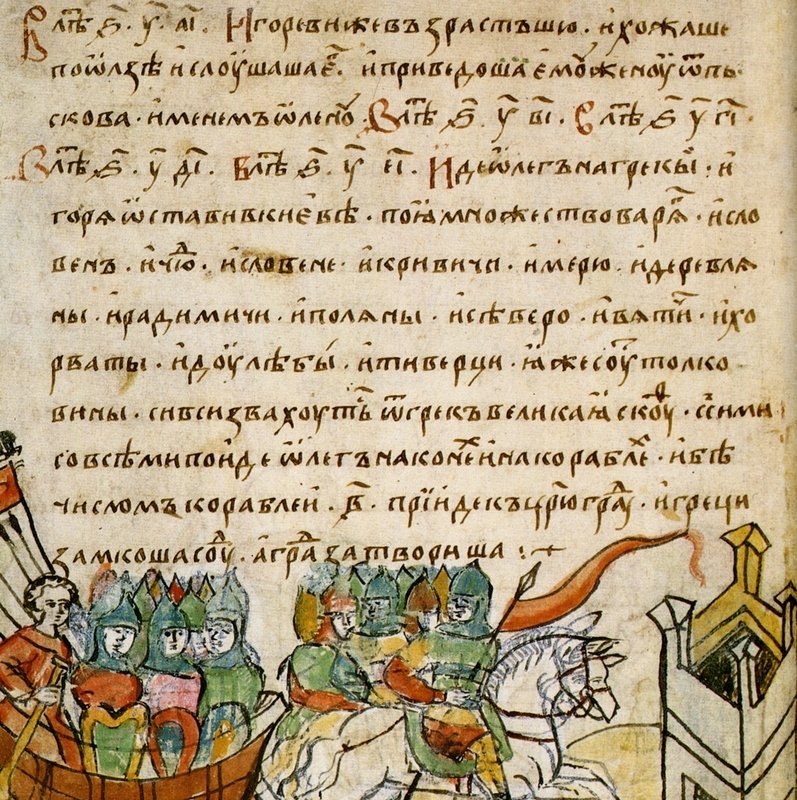 В лѣⷮ ҂ѕ҃. у҃. а҃і. Игоревиже възрастъшю. и хожаше
по ѿлзѣ и слоушаша еⷢ҇. и приведоша ему женоу ѿ пь
скова. именемъ ѡленоу В лѣⷮ ҂ѕ҃ у҃ в҃і. В лѣⷮ ҂ѕ҃ у҃ г҃і.
В лѣⷮ ҂ѕ҃. у҃ д҃і. В лѣⷮ ҂ѕ҃. у҃ е҃і. Иде ѡлегъ на грекы. и
горѧ ѡстави в киевѣ. поꙗ множество варѧⷢ. и сло
венъ. и чюⷣ. и словене. и кривичи. и мерю. и деревлѧ
ны. и радимичи. и полѧны. и сѣверо. и вѧтичи. и хо
рваты. и доулѣбы. и тиверци. ꙗже соуⷮ толко
вины. си вси звахоутьⷭ ѿ грекъ великаꙗ скоуⷴ. с сими
со всѣми поиде ѡлегъ на конеⷯ и на кораблеⷯ. и бѣ
числомъ кораблеи. ҂в҃. прїиде къ ц҃рюграⷣу. и греци
замкоша соуⷣ. а граⷣ затвориша :·